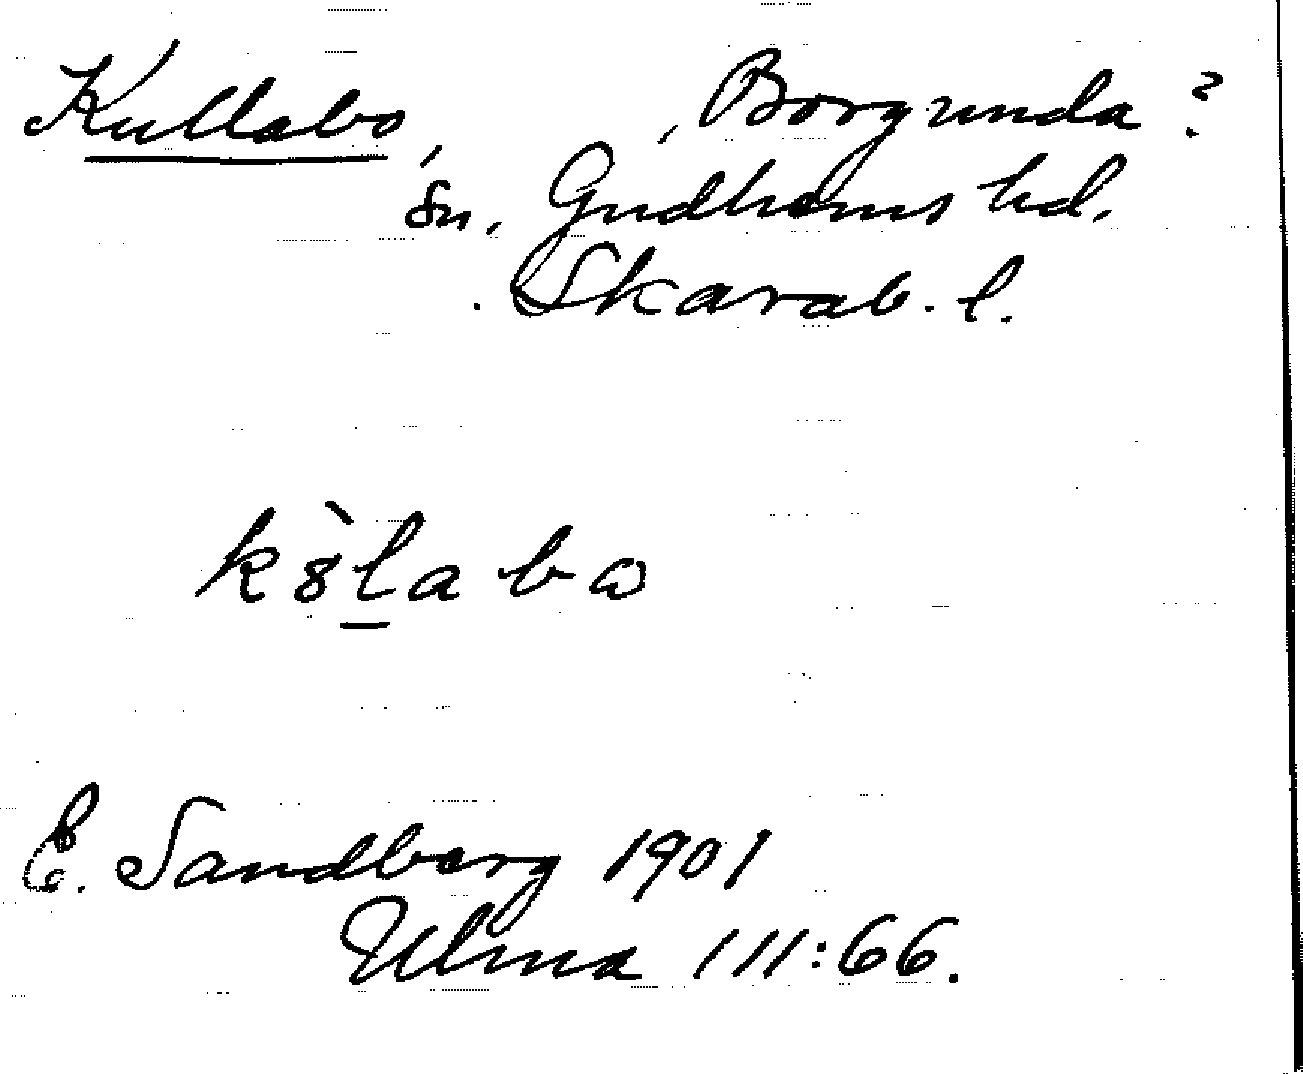 Kullabo, , Borgunda ?
sn, Gudhems hd.
. Skarab. l.
k8̀l̲a bɷ
E. Sandberg 1901
Ulma 111:66.